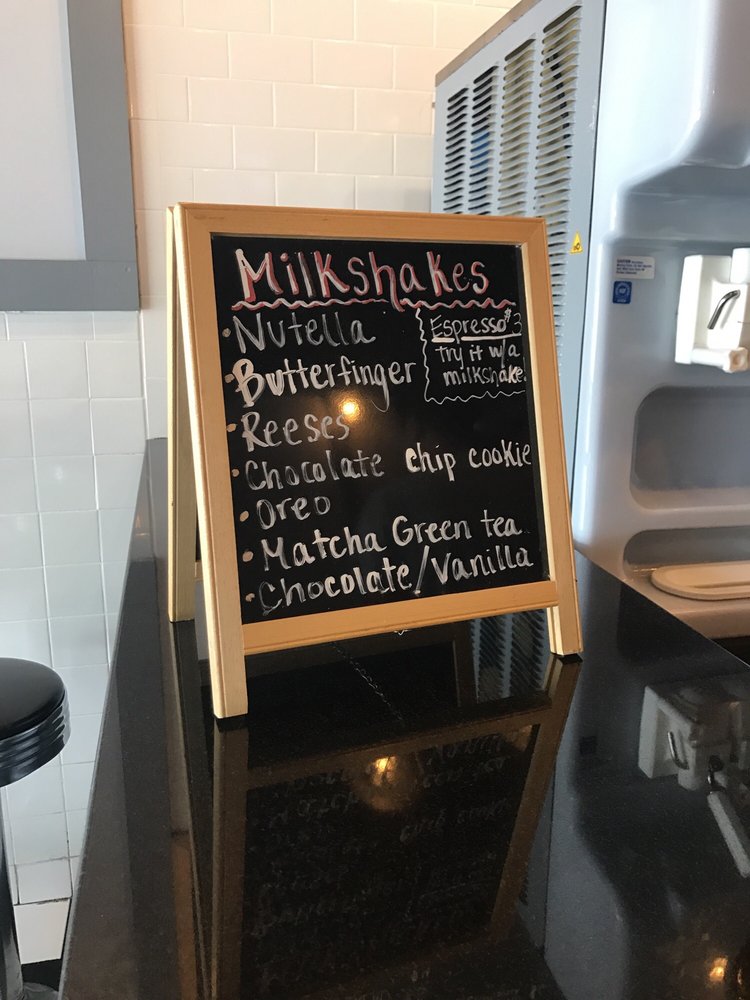 Milkshakes
• Nutella
• Butterfinger
• Reeses
• Chocolate chip cookie
• Oreo
• Matcha Green tea
• Chocolate/Vanilla
Espresso $3
try it w/a
milkshake